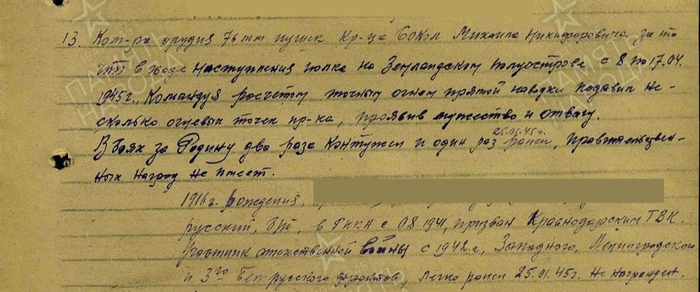 13. Ком-ра орудия 76 мм пушек Кр-ца Сокол Михаила Никифоровича за то
что в ходе наступления полка на Земландском полуострове с 8 по 17.04.
1945г. Командуя расчетом точным огнем прямой наводки подавил не-
сколько огневых точек пр-ка, проявив мужество и отвагу.
В боях за Родину два раза контужен и один раз 25.01.45г. ранен, Правительствен-
ных наград не имеет.
1916г. рождения,
русский, б/п, в РККА с 08.1941, призван Краснодарским ГВК.
Участник отечественной войны с 1942г., Западного, Ленинградского
и 3го Белорусского фронтов, легко ранен 25.01.45г. Не награжден.